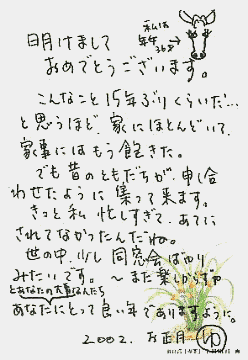 明けまして
おめでとうございます。
私は
年年
36才
こんなこと15年ぶりくらいだ…
と思うほど、家にほとんどいて、
家事にはもう飽きた。
でも昔のともだちが、申し合
わせたように集って来ます。
きっと私忙しすぎて、あてに
されてなかったんだね。
世の中、少し同窓会ばやり
みたいです。〜また楽しからずや
とあなたの大事な人たち
あなたにとって良い年でありますように。
2002. お正月 ゆ